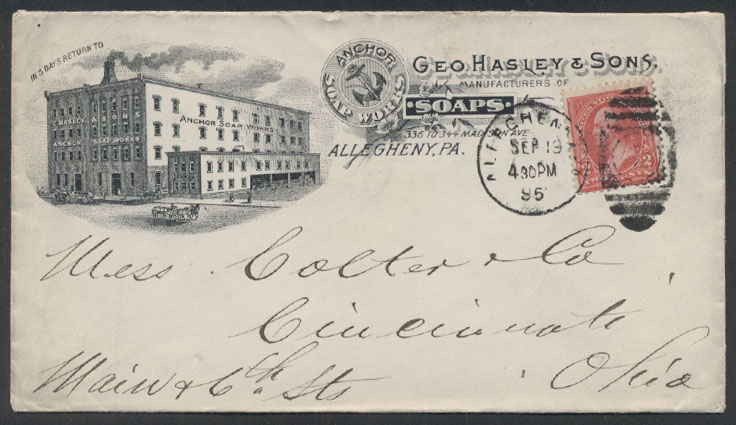 IN 5 DAYS RETURN TO
G. HASLEY & SONS
ANCHOR SOAP WORKS
ANCHOR SOAP WORKS
ANCHOR
SOAP WORKS
GEO. HASLEY & SONS.
MANUFACTURERS OF
SOAPS.
336 TO 344 MADISON AVE.
ALLEGHENY, PA.
ALLEGHENY
SEP 19
430PM
95
2
Mess Colter & Co
Cincinnati
Main & 6th Sts Ohio